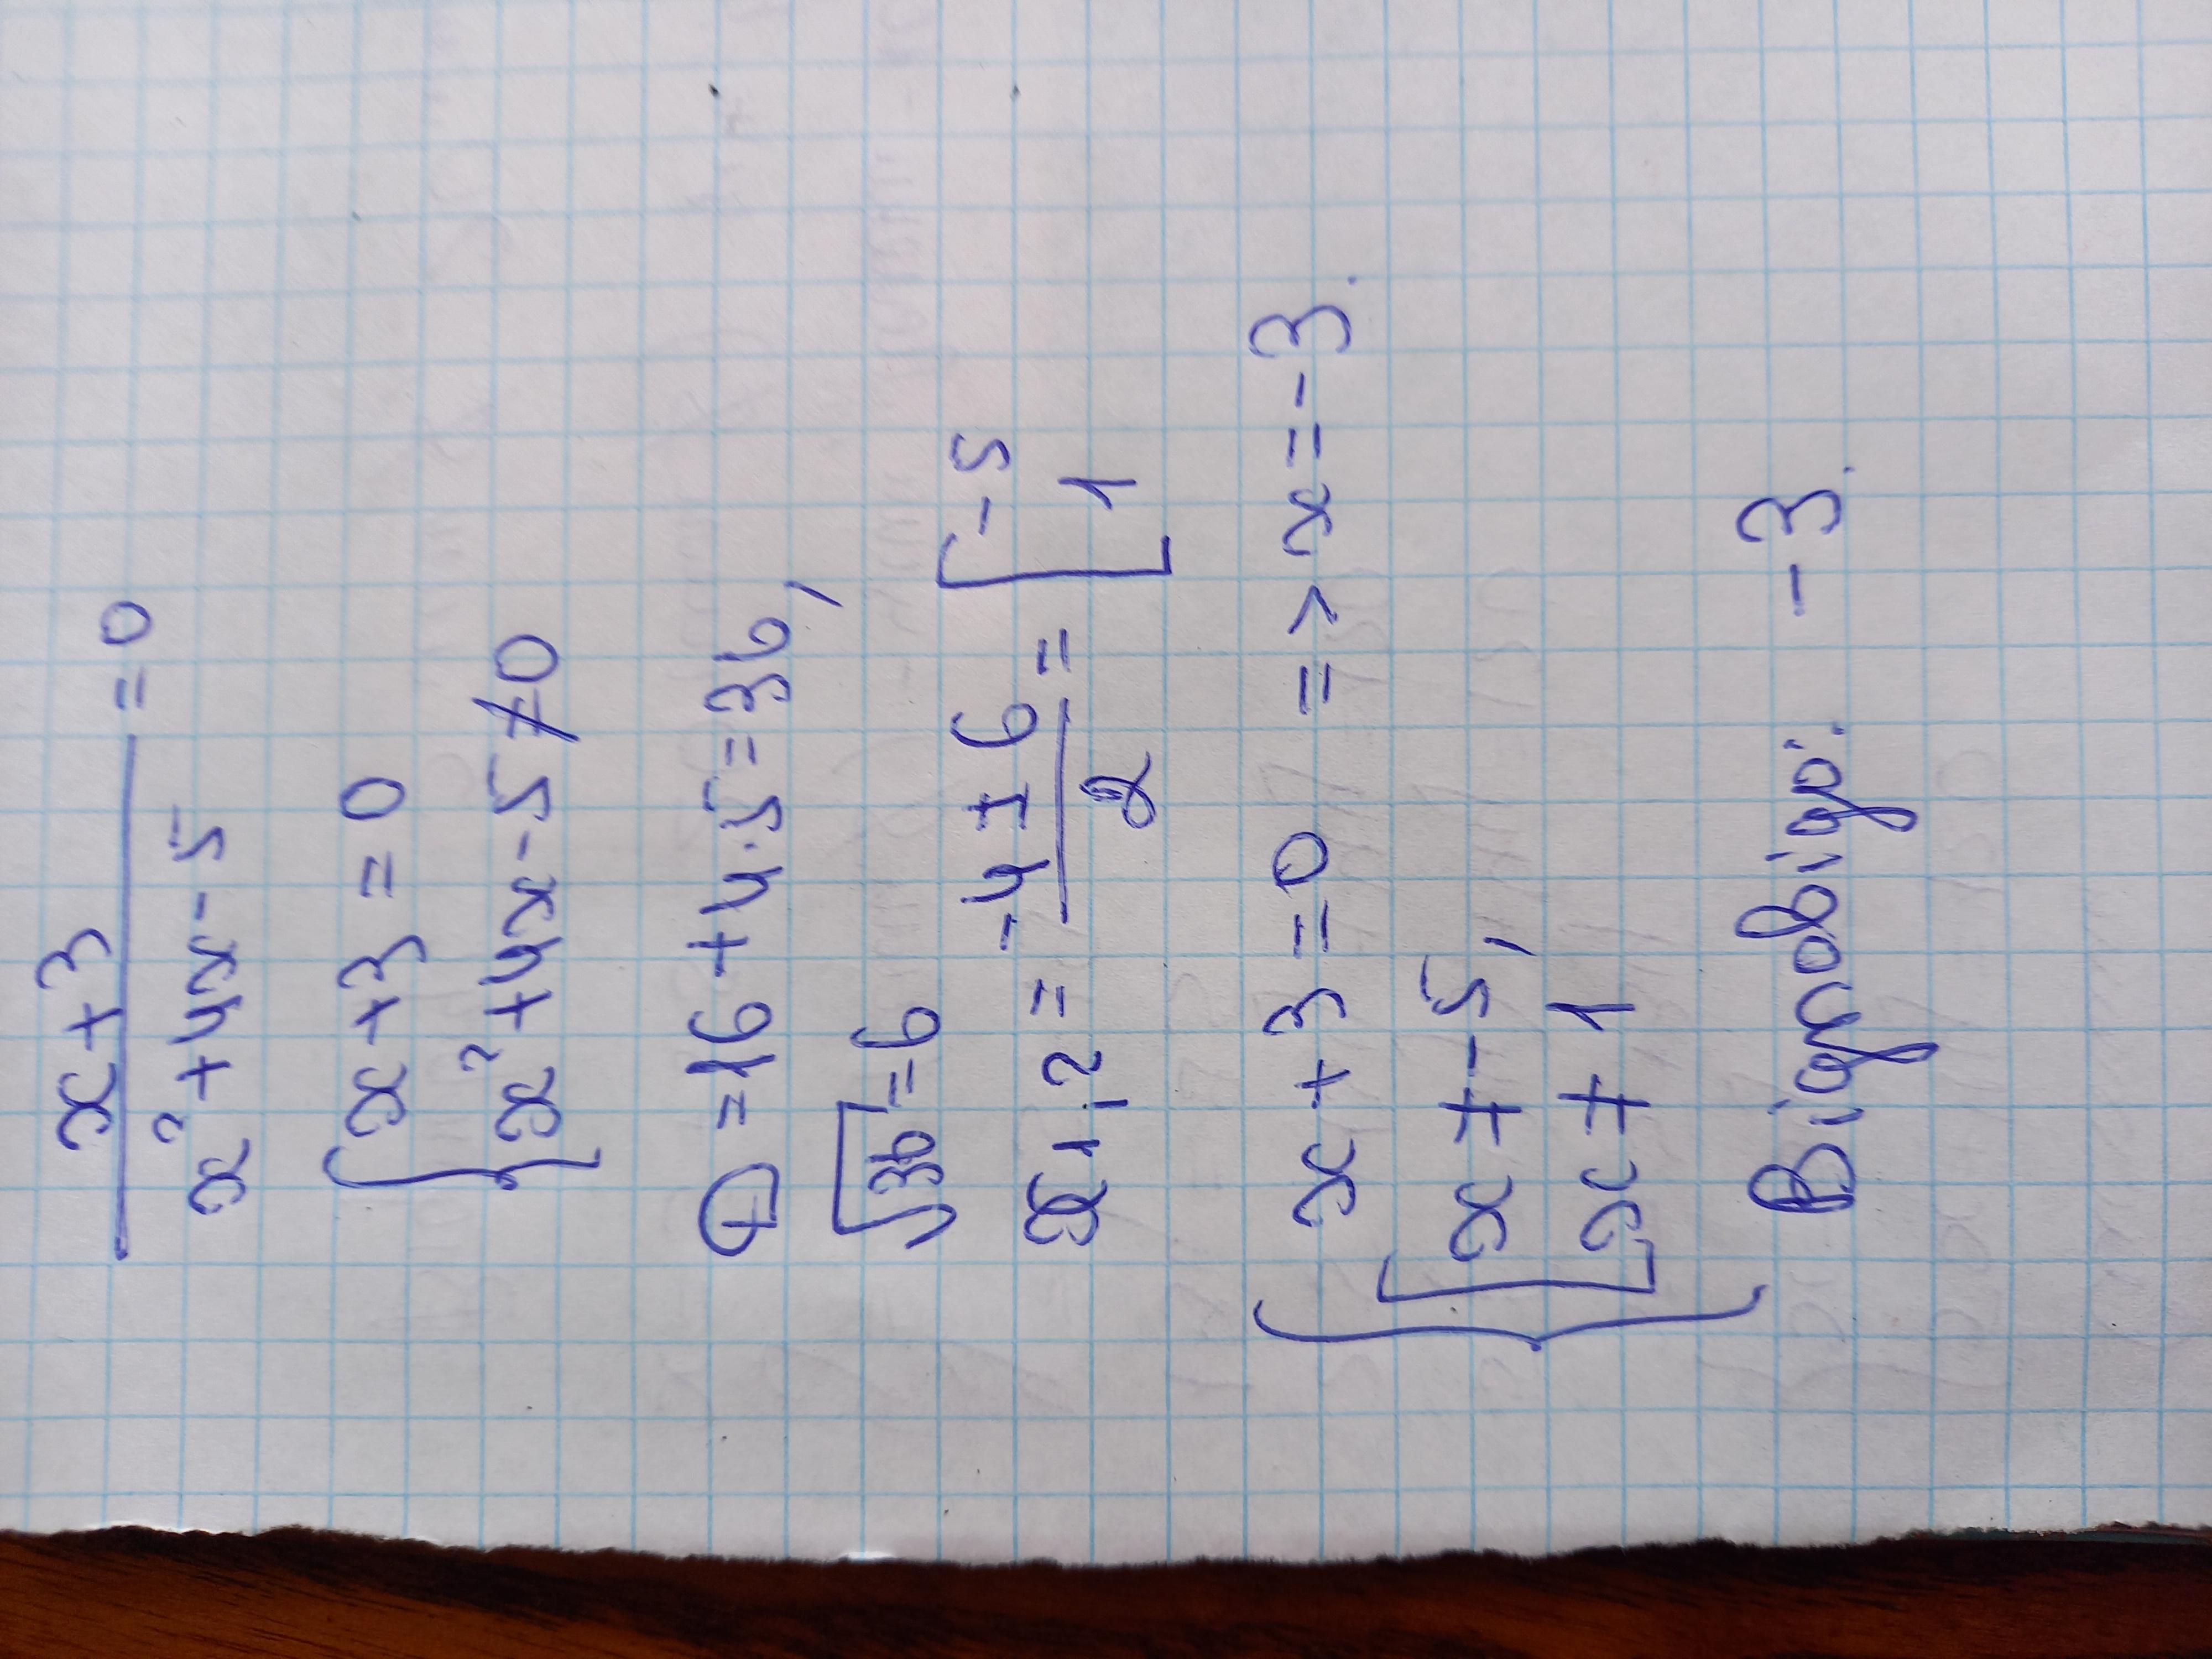 x+3
―――― =0
x²+4x-5
{ x+3=0
x²+4x-5≠0
D=16+4·5=36,
√36=6
x1,2= (-4±6)/2 = [ -5
1
{ x+3=0 => x=-3.
[ x≠-5,
x≠1
Відповідь: -3.